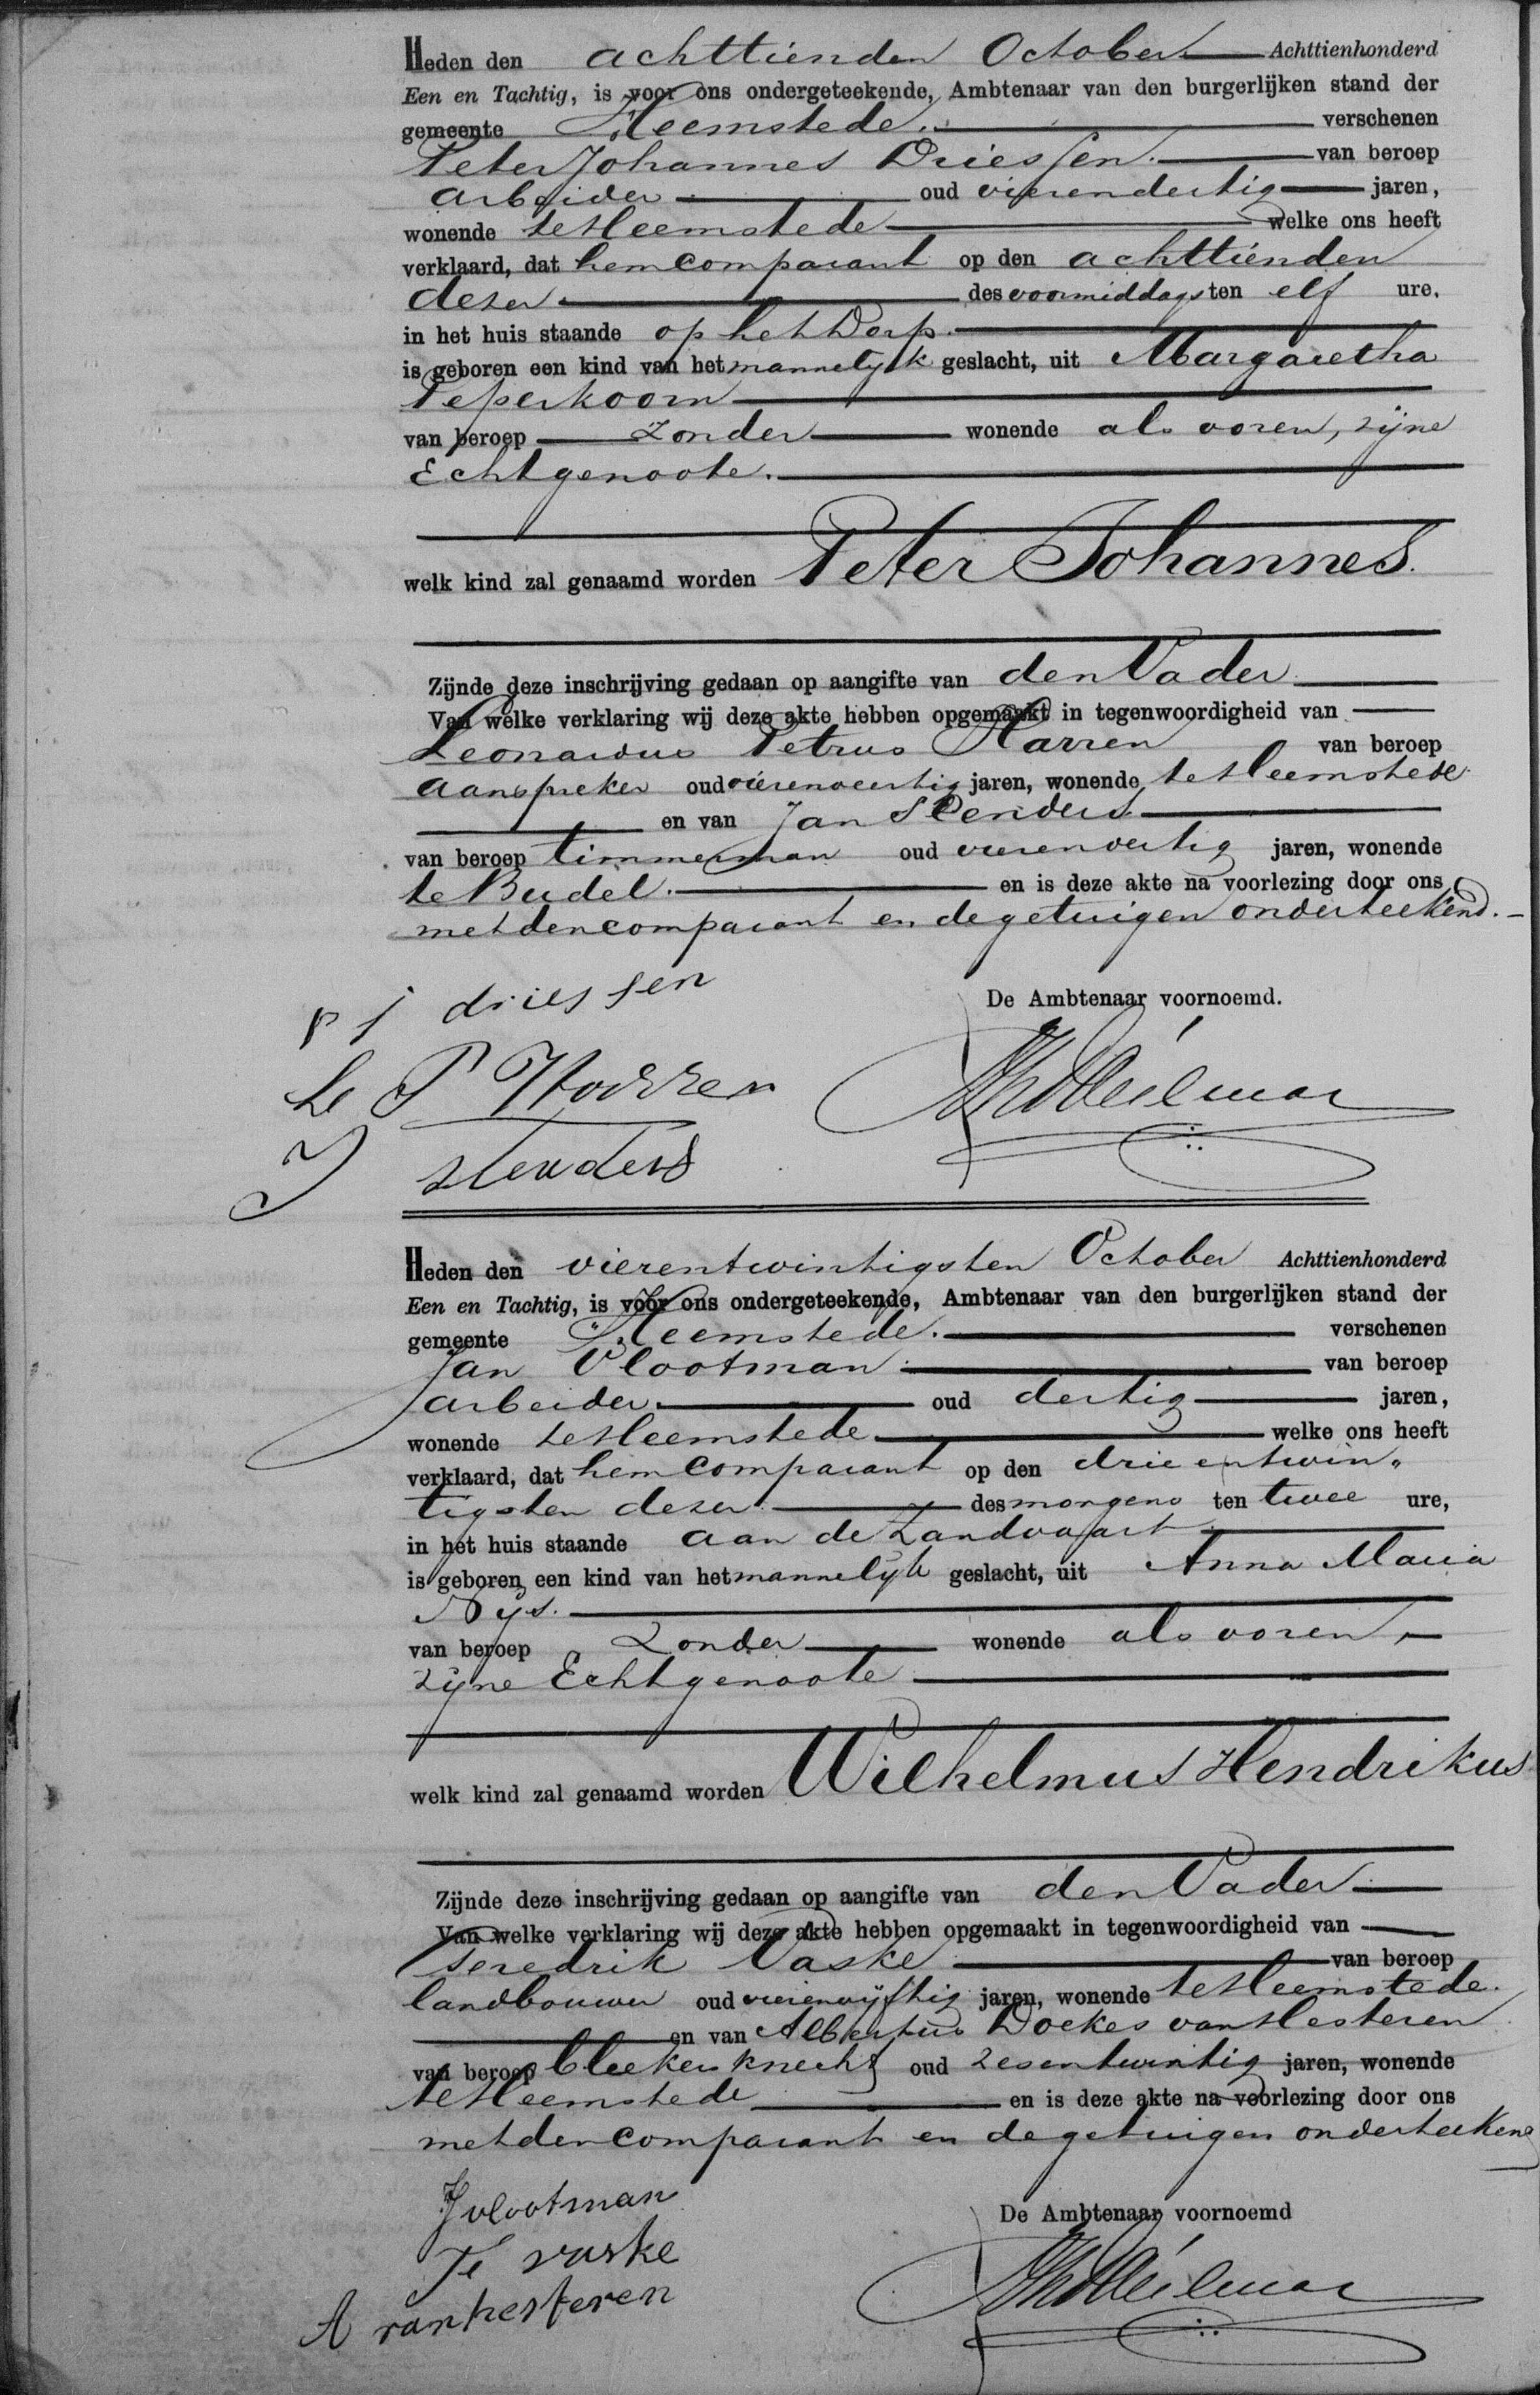 Heden den achttienden October Achttienhonderd
Een en Tachtig, is voor ons ondergeteekende, Ambtenaar van den burgerlijken stand der
gemeente Heemstede. verschenen
Peter Johannes Driessen. van beroep
arbeider oud vierendertig jaren,
wonende te Heemstede welke ons heeft
verklaard, dat hem Comparant op den achttienden
dezer des voormiddags ten elf ure,
in het huis staande op het Dorp.
is geboren een kind van het mannelijk geslacht, uit Margaretha
Peperkoorn
van beroep Zonder wonende als voren, zijne
Echtgenoote.
welk kind zal genaamd worden Peter Johannes.
Zijnde deze inschrijving gedaan op aangifte van den Vader
Van welke verklaring wij deze akte hebben opgemaakt in tegenwoordigheid van
Leonardus Petrus Harren van beroep
aanspreker oud jaren, wonende te Heemstede
en van Jan Slenders.
van beroep timmerman oud jaren, wonende
te Budel. en is deze akte na voorlezing door ons
met den comparant en de getuigen onderteekend.
p j driessen
De Ambtenaar voornoemd.
Le P Harren
J slenders
Heden den vierentwintigsten October Achttienhonderd
Een en Tachtig, is voor ons ondergeteekende, Ambtenaar van den burgerlijken stand der
gemeente Heemstede. verschenen
Jan Vlootman van beroep
arbeider. oud dertig jaren,
wonende te Heemstede welke ons heeft
verklaard, dat hem Comparant op den drie entwin„
tigsten dezer des morgens ten twee ure,
in het huis staande aan de Zandvaart
is geboren een kind van het mannelijk geslacht, uit Anna Maria
Nijs.
van beroep Zonder wonende als voren,
zijne Echtgenoote
welk kind zal genaamd worden Wilhelmus Hendrikus
Zijnde deze inschrijving gedaan op aangifte van den Vader
Van welke verklaring wij deze akte hebben opgemaakt in tegenwoordigheid van
Vaske van beroep
landbouwer oud vierenvijftig jaren, wonende te Heemstede.
en van Albertus Doekes van Hesteren
van beroep bleekersknecht oud zesentwintig jaren, wonende
te Heemstede en is deze akte na voorlezing door ons
met den comparant en de getuigen onderteekend
J vlootman
De Ambtenaar voornoemd
Te vaske
A van hesteren